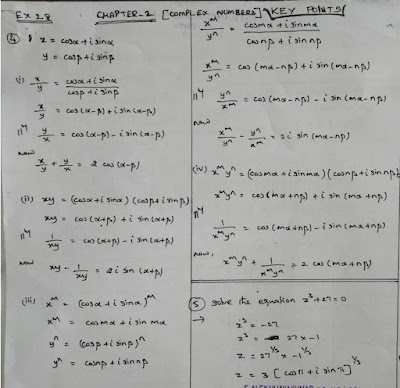 EX 2.8 CHAPTER-2 [COMPLEX NUMBERS] KEY POINTS
④ x = cosα + i sinα
y = cosβ + i sinβ
(i) x/y = (cosα + i sinα)/(cosβ + i sinβ)
x/y = cos(α-β) + i sin(α-β)
|||ly y/x = cos(α-β) - i sin(α-β)
now
x/y + y/x = 2 cos(α-β)
(ii) xy = (cosα + i sinα)(cosβ + i sinβ)
xy = cos(α+β) + i sin(α+β)
|||ly 1/xy = cos(α+β) - i sin(α+β)
now
xy - 1/xy = 2 i sin(α+β)
(iii) x^m = (cosα + i sinα)^m
x^m = cosmα + i sin mα
y^n = (cosβ + i sinβ)^n
y^n = cosnβ + i sinnβ
x^m/y^n = (cosmα + i sinmα)/(cosnβ + i sinnβ)
x^m/y^n = cos(mα-nβ) + i sin(mα-nβ)
|||ly y^n/x^m = cos(mα-nβ) - i sin(mα-nβ)
now
x^m/y^n - y^n/x^m = 2 i sin(mα-nβ)
(iv) x^m y^n = (cosmα + i sinmα)(cosnβ + i sinnβ)
x^m y^n = cos(mα+nβ) + i sin(mα+nβ)
|||ly 1/(x^m y^n) = cos(mα+nβ) - i sin(mα+nβ)
now,
x^m y^n + 1/(x^m y^n) = 2 cos(mα+nβ)
⑤ solve the equation z^3+27=0
→ z^3 = -27
z^3 = 27 x -1
z = 27^1/3 x -1^1/3
z = 3 [cosπ + i sinπ]^1/3